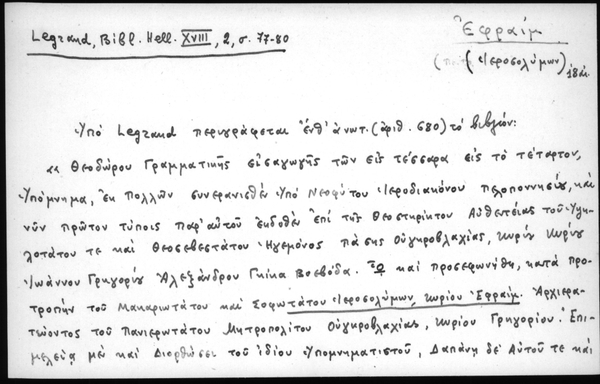 Legrand, Bibl. Hell. XVIII, 2, σ. 77-80
Ἐφραίμ
(Ἱεροσολύμων) 18 αἰ.
Ὑπό Legrand περιγράφεται ἔνθ' ἀνωτ. (ἀριθ. 680) τό βιβλίον:
« Θεοδώρου Γραμματικῆς εἰσαγωγῆς τῶν εἰς τέσσαρα εἰς τό τέταρτον,
Ὑπόμνημα, ἐκ πολλῶν συνερανισθέν ὑπό Νεοφύτου Ἱεροδιακόνου Πελοποννησίου, καί
νῦν πρῶτον τύποις παρ' αὐτοῦ ἐκδοθέν ἐπί τῆς Θεοστηρίκτου Αὐθεντείας τοῦ Ὑψη-
λοτάτου τε καί Θεοσεβεστάτου Ἡγεμόνος πάσης Οὐγκροβλαχίας, Κυρίου Κυρίου
Ἰωάννου Γρηγορίου Ἀλεξάνδρου Γκίκα Βοεβόδα. Ὃ καί προσεφωνήθη, κατά προ-
τροπήν τοῦ Μακαρωτάτου καί Σοφωτάτου Ἱεροσολύμων, Κυρίου Ἐφραίμ. Ἀρχιερα-
τεύοντος τοῦ Πανιερωτάτου Μητροπολίτου Οὐγκροβλαχίας, Κυρίου Γρηγορίου. Ἐπι-
μελείᾳ μέν καί Διορθώσει τοῦ ἰδίου Ὑπομνηματιστοῦ, Δαπάνῃ δέ Αὐτοῦ τε καί